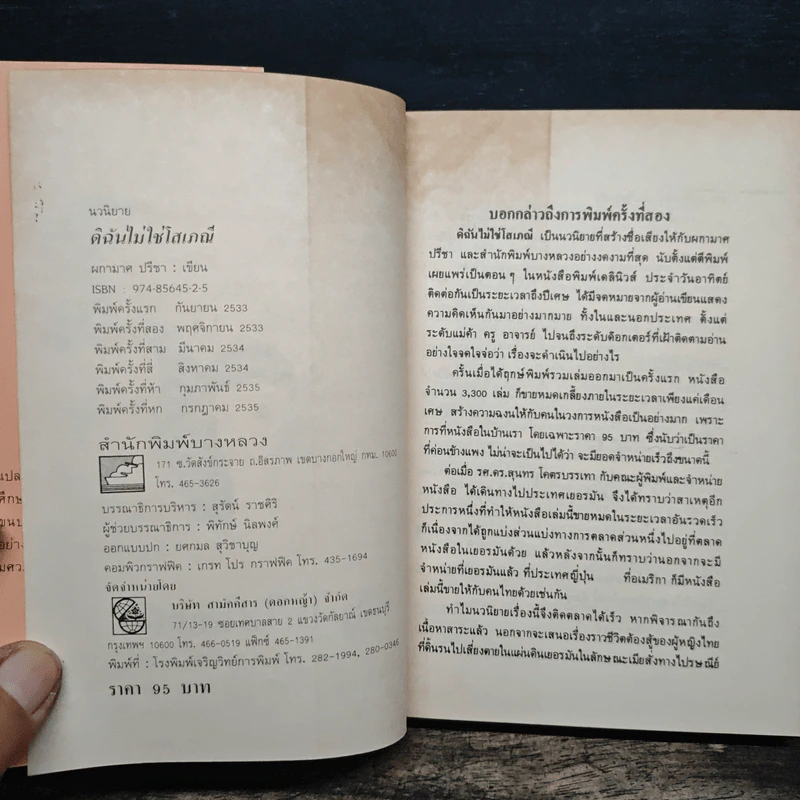 นวนิยาย
ดิฉันไม่ใช่โสเภณี
ผกามาศ ปรีชา : เขียน
ISBN : 974-85645-2-5
พิมพ์ครั้งแรก กันยายน 2533
พิมพ์ครั้งที่สอง พฤศจิกายน 2533
พิมพ์ครั้งที่สาม มีนาคม 2534
พิมพ์ครั้งที่สี่ สิงหาคม 2534
พิมพ์ครั้งที่ห้า กุมภาพันธ์ 2535
พิมพ์ครั้งที่หก กรกฎาคม 2535
สำนักพิมพ์บางหลวง
171 ซ.วัดสังข์กระจาย ถ.อิสรภาพ เขตบางกอกใหญ่ กทม. 10600
โทร. 465-3626
บรรณาธิการบริหาร : สุรัตน์ ราชศิริ
ผู้ช่วยบรรณาธิการ : พิทักษ์ นิลพงศ์
ออกแบบปก : ยศกมล สุวิชาบุญ
คอมพิวกราฟฟิค : เกรท โปร กราฟฟิค โทร. 435-1694
จัดจำหน่ายโดย
บริษัท สามัคคีสาร (ดอกหญ้า) จำกัด
71/13-19 ซอยเทศบาลสาย 2 แขวงวัดกัลยาณ์ เขตธนบุรี
กรุงเทพฯ 10600 โทร. 466-0519 แฟ็กซ์ 465-1391
พิมพ์ที่ : โรงพิมพ์เจริญวิทย์การพิมพ์ โทร. 282-1994, 280-0346
ราคา 95 บาท
บอกกล่าวถึงการพิมพ์ครั้งที่สอง
ดิฉันไม่ใช่โสเภณี เป็นนวนิยายที่สร้างชื่อเสียงให้กับผกามาศ
ปรีชา และสำนักพิมพ์บางหลวงอย่างงดงามที่สุด นับตั้งแต่ตีพิมพ์
เผยแพร่เป็นตอน ๆ ในหนังสือพิมพ์เดลินิวส์ ประจำวันอาทิตย์
ติดต่อกันเป็นระยะเวลาถึงปีเศษ ได้มีจดหมายจากผู้อ่านเขียนแสดง
ความคิดเห็นกันมาอย่างมากมาย ทั้งในและนอกประเทศ ตั้งแต่
ระดับแม่ค้า ครู อาจารย์ ไปจนถึงระดับด็อกเตอร์ที่เฝ้าติดตามอ่าน
อย่างใจจดใจจ่อว่า เรื่องจะดำเนินไปอย่างไร
ครั้นเมื่อได้ฤกษ์พิมพ์รวมเล่มออกมาเป็นครั้งแรก หนังสือ
จำนวน 3,300 เล่ม ก็ขายหมดเกลี้ยงภายในระยะเวลาเพียงแค่เดือน
เศษ สร้างความฉงนให้กับคนในวงการหนังสือเป็นอย่างมาก เพราะ
การที่หนังสือในบ้านเรา โดยเฉพาะราคา 95 บาท ซึ่งนับว่าเป็นราคา
ที่ค่อนข้างแพง ไม่น่าจะเป็นไปได้ว่า จะมียอดจำหน่ายเร็วถึงขนาดนี้
ต่อเมื่อ รศ.ดร.สุนทร โคตรบรรเทา กับคณะผู้พิมพ์และจำหน่าย
หนังสือ ได้เดินทางไปประเทศเยอรมัน จึงได้ทราบว่าสาเหตุอีก
ประการหนึ่งที่ทำให้หนังสือเล่มนี้ขายหมดในระยะเวลาอันรวดเร็ว
ก็เนื่องจากได้ถูกแบ่งส่วนแบ่งทางการตลาดส่วนหนึ่งไปอยู่ที่ตลาด
หนังสือในเยอรมันด้วย แล้วหลังจากนั้นก็ทราบว่านอกจากจะมี
จำหน่ายที่เยอรมันแล้ว ที่ประเทศญี่ปุ่น ที่อเมริกา ก็มีหนังสือ
เล่มนี้ขายให้กับคนไทยด้วยเช่นกัน
ทำไมนวนิยายเรื่องนี้จึงติดตลาดได้เร็ว หากพิจารณากันถึง
เนื้อหาสาระแล้ว นอกจากจะเสนอเรื่องราวชีวิตต้องสู้ของผู้หญิงไทย
ที่ดิ้นรนไปเสี่ยงตายในแผ่นดินเยอรมันในลักษณะเมียสั่งทางไปรษณีย์